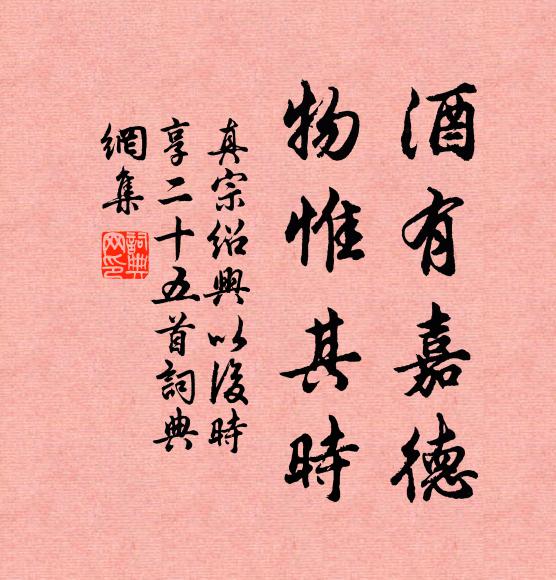 酒有嘉德
物惟其時
真宗紹興以後時
享二十五首詞典
網集
詞典
网印